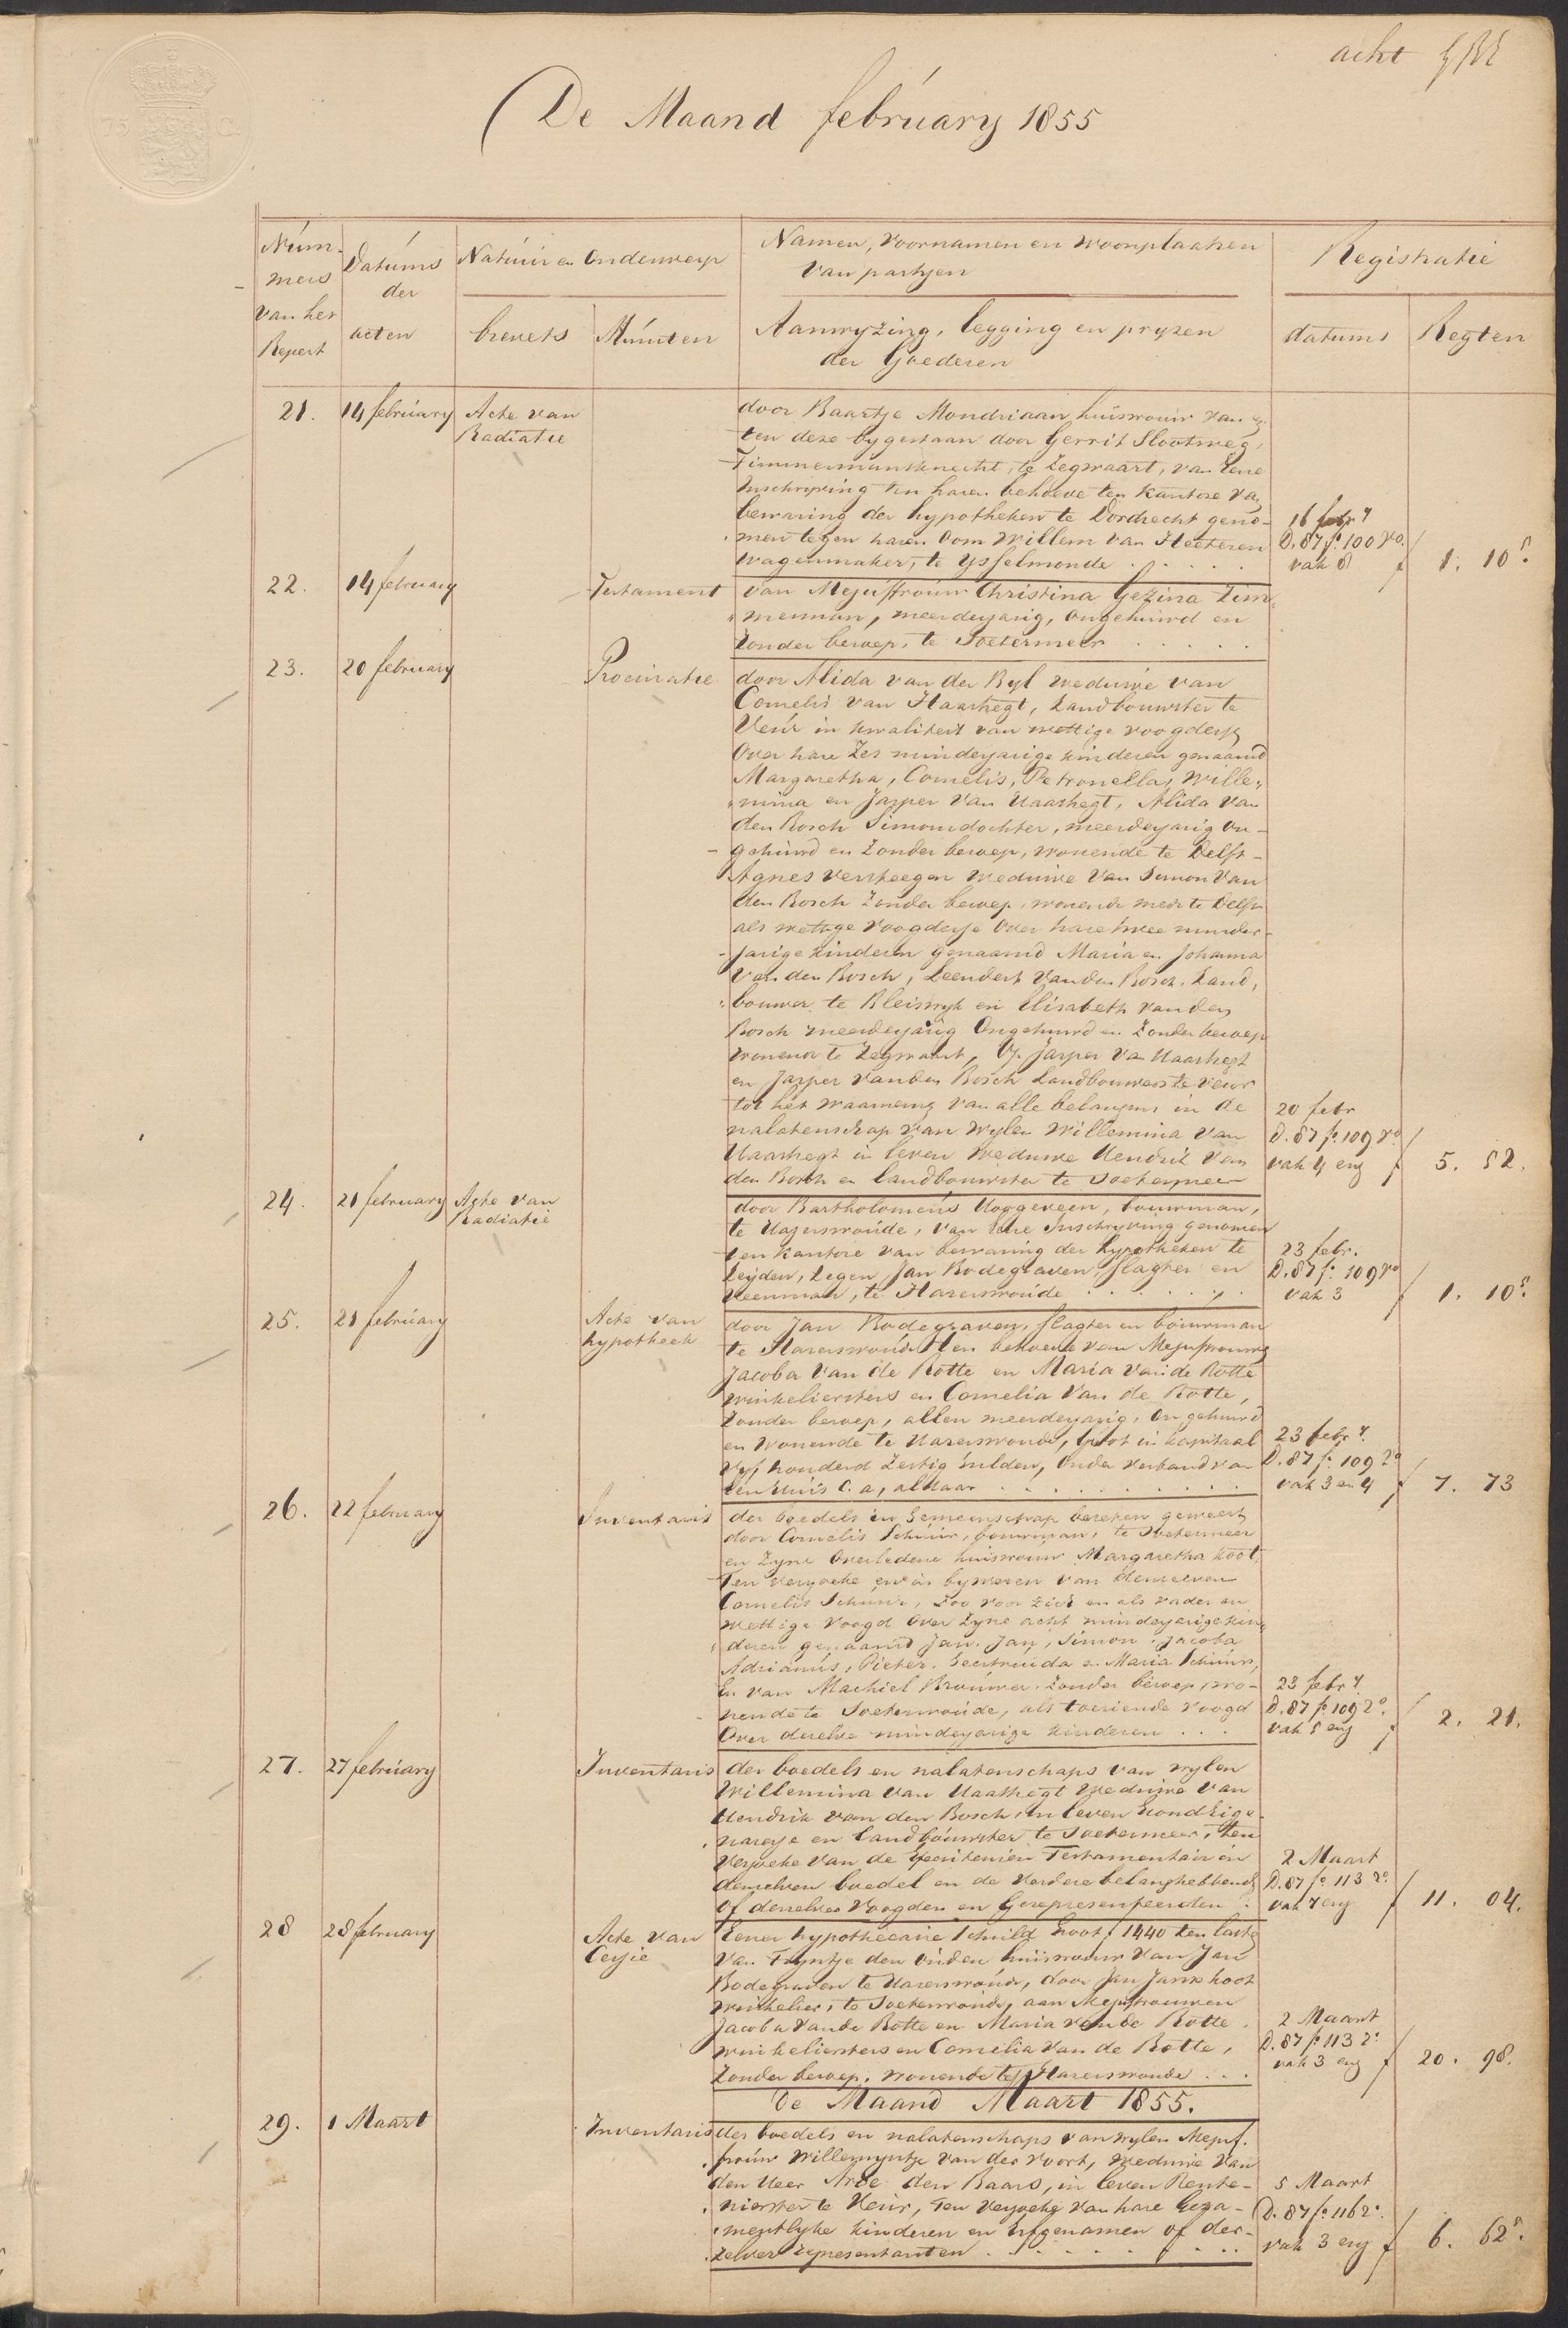 acht
De Maand february 1855
Num-
mers
van het
Repert
Datums
der
acten
Natuur en Onderwerp
brevets
Minuten
Namen, Voornamen en Woonplaatsen
van partyen
Aanwyzing, legging en pryzen
der Goederen
Registratie
datums
Regten
21.
14 february
Acte van
Radiatie
door Baartje Mondriaan huisvrouw van en
ten deze bygestaan door Gerrit Slootweg,
Timmermansknecht, te Zegwaart, van eene
Inschryving ten haren behoeve ten kantore van
bewaring der hypotheken te Dordrecht geno-
men tegen haren Oom Willem van Heeteren
wagenmaker, te Ysselmonde . . . . .
16 febr
D. 87 fo. 100 vo.
vak 8
f 1. 10 5.
22.
14 february
Testament
van Mejuffrouw Christina Gezina Zim-
merman, meerderjarig, ongehuwd en
zonder beroep, te Soetermeer . . . . .
23.
20 february
Procuratie
door Alida van der Byl weduwe van
Cornelis van Haastregt, Landbouwster te
Veur in kwaliteit van wettige voogdesse
Over hare Zes minderjarige kinderen genaamd
Margaretha, Cornelis, Petronella, Wille-
mina en Jasper van Haastregt, Alida van
den Bosch Simonsdochter, meerderjarig on-
gehuwd en Zonder beroep, wonende te Delft -
Agnes Versteegen weduwe van Simon van
den Bosch Zonder beroep, wonende mede te Delft
als wettige Voogdesse Over hare twee minder-
jarige kinderen genaamd Maria en Johanna
van den Bosch, Leendert van den Bosch, Land-
bouwer te Bleiswyk en Elisabeth van den
Bosch meerderjarig Ongehuwd en Zonder beroep
wonende te Zegwaart, Op Jasper van Haastregt
en Jasper van den Bosch Landbouwers te Veur
tot het waarneming van alle belangens in de
nalatenschap van wylen Willemina van
Haastregt in leven weduwe Hendrik van
den Bosch en landbouwster te Soetermeer
20 febr
D. 87 fo. 109 vo.
vak 4 enz
f 5. 52.
24.
21 february
Acte van
Radiatie
door Bartholomeus Hoogeveen, bouwman,
te Hazerswoude, van eene Inschryving genomen
ten kantore van bewaring der hypotheken te
Leyden, tegen Jan Bodegraven, slagter en
veenman, te Hazerswoude . . . . . .
23 febr.
D. 87 fo. 109 vo
vak 3
f 1. 10 5.
25.
21 february
Acte van
hypotheek
door Jan Bodegraven, slagter en bouwman
te Hazerswoude ten behoeve van Mejufvrouwen
Jacoba van de Rotte en Maria van de Rotte
winkeliersters en Cornelia van de Rotte,
Zonder beroep, allen meerderjarig, Ongehuwd
en wonende te Hazerswoude, Groot in kapitaal
Vyf honderd Zestig Gulden, Onder Verband van
een Huis C. a, aldaar . . . . . . . . .
23 febr.
D. 87 fo. 109 vo
vak 3 en 4
f 7. 73
26.
22 february
Inventaris
der boedels in Gemeenschap bezeten geweest
door Cornelis Schuur, bouwman, te Soetermeer
en Zyne Overledene huisvrouw Margaretha Koot
Ten verzoeke en in bywezen van denzelven
Cornelis Schuur, Zoo voor Zich en als vader en
wettige Voogd Over Zyne acht minderjarige kin-
deren genaamd Jan, Jan, Simon, Jacoba
Adrianus, Pieter, Geertruida en Maria Schuur,
En van Machiel Brouwer, Zonder beroep, wo-
nende te Soeterwoude, als toeziende Voogd
Over dezelve minderjarige kinderen . . .
23 febr.
D. 87 fo. 109 vo.
vak 5 enz
f 2. 21.
27.
27 february
Inventaris
der boedels en nalatenschaps van wylen
Willemina van Haastregt weduwe van
Hendrik van den Bosch, in leven Grondeige-
naresse en landbouwster te Soetermeer, ten
Verzoeke van de Executeuren Testamentair in
denzelven boedel en de Verdere belanghebbende
of derzelver Voogden en Gerepresenteerden .
2 Maart
D. 87 fo. 113 vo.
vak 7 enz
f 11. 04.
28
28 february
Acte van
Cessie
Eener hypothecaire Schuld Groot f 1440 ten laste
van Fyntje den Ouden huisvrouw van Jan
Bodegraven te Hazerswoude, door Jan Jansz Koot
winkelier, te Soeterwoude, aan Mejufvrouwen
Jacoba van de Rotte en Maria van de Rotte,
winkeliersters en Cornelia van de Rotte,
Zonder beroep, wonende te Hazerswoude . . .
2 Maart
D. 87 fo. 113 vo.
vak 3 enz
f 20. 98.
De Maand Maart 1855.
29.
1 Maart
Inventaris
des boedels en nalatenschaps van wylen Mejuf-
frouw Willemyntje van der Voort, weduwe van
den Heer Arie den Baars, in leven Rente-
nierster te Veur, Ten Verzoeke van hare Geza-
mentlyke kinderen en Erfgenamen of der-
zelver representanten . . . . . . . .
5 Maart
D. 87 fo. 116 vo.
vak 3 enz
f 6. 62 5.